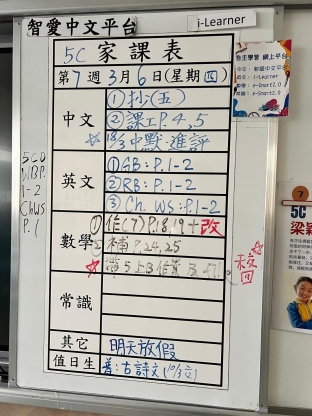 智愛中文平台
i-Learner
5C 家課表
第7週3月6日(星期四)
中文
①抄(五)
②課工P.4,5
☆18/3中默 進評
英文
①GB:P.1-2
②RB:P.1-2
③Ch. WS:P.1-2
數學
①作(7)P.18,19+改
②補P.24,25
常識
其它
明天放假
值日生
普:古詩文(10/3交)
5CD
WBP.
1-2
ChWS
P.1
自主學習 網上平台
中文:智愛中文平台
英文:i-Learner
數學:e-Smart2.0
常識:e-Smart2.0
7
5C